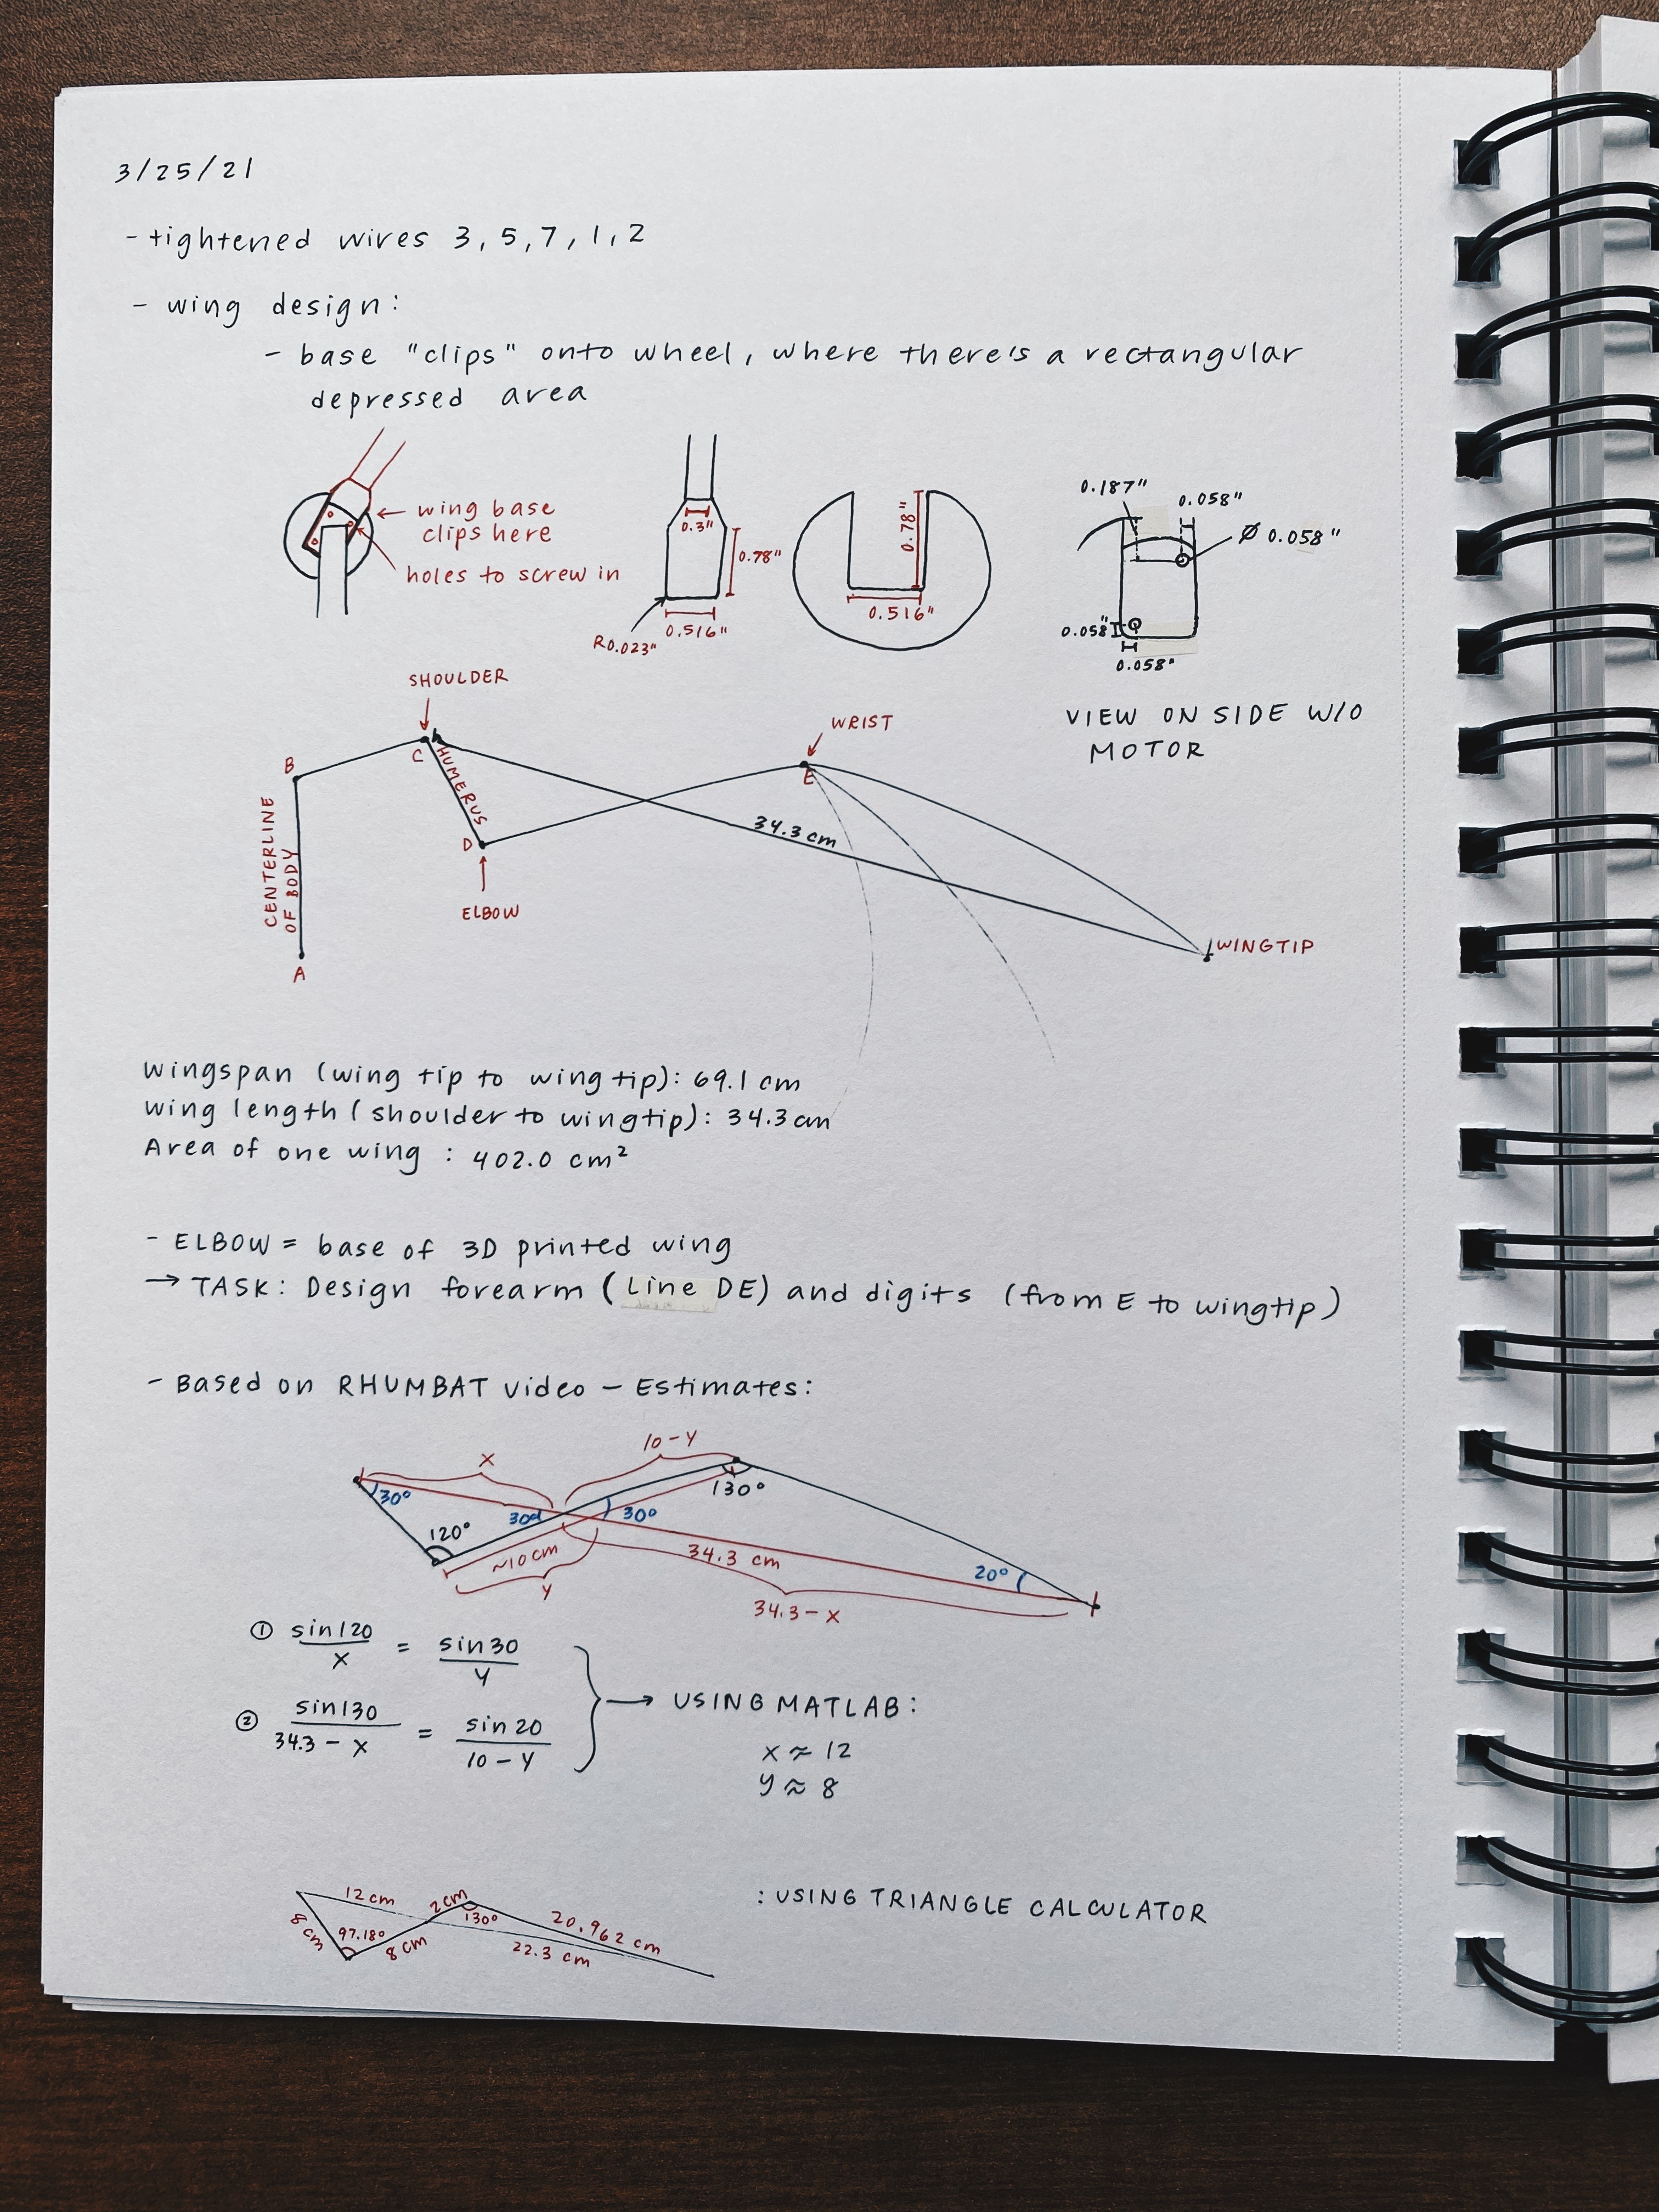 3/25/21
- tightened wires 3, 5, 7, 1, 2
- wing design:
- base "clips" onto wheel, where there's a rectangular
depressed area
wing base
clips here
holes to screw in
0.3"
0.78"
0.516"
R0.023"
0.78"
0.516"
0.187"
0.058"
Ø 0.058"
0.058"
0.058"
VIEW ON SIDE W/O
MOTOR
SHOULDER
B
C
HUMERUS
D
ELBOW
WRIST
E
34.3 cm
WINGTIP
CENTERLINE
OF BODY
A
wingspan (wing tip to wing tip): 69.1 cm
wing length (shoulder to wingtip): 34.3 cm
Area of one wing : 402.0 cm²
- ELBOW = base of 3D printed wing
→ TASK: Design forearm (Line DE) and digits (from E to wingtip)
- Based on RHUMBAT video - Estimates:
x
10-y
30°
120°
30°
30°
130°
~10cm
y
34.3 cm
20°
34.3 - x
① sin120/x = sin30/y
② sin130/34.3 - x = sin 20/10 - y
→ USING MATLAB:
x ≈ 12
y ≈ 8
12 cm
2cm
8 cm
97.18°
8 cm
130°
20.962 cm
22.3 cm
: USING TRIANGLE CALCULATOR